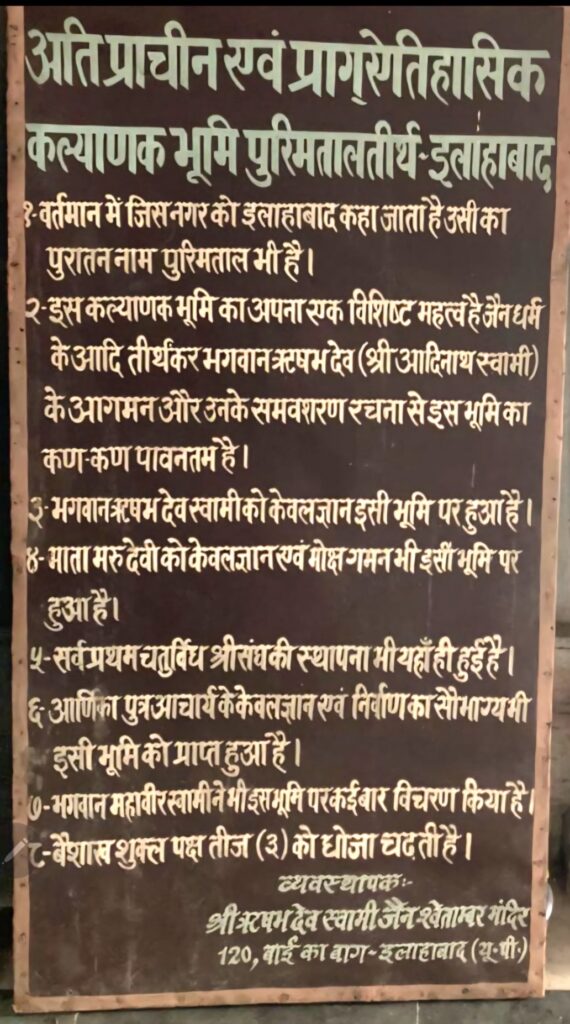 अति प्राचीन एवं प्राग्ऐतिहासिक
कल्याणक भूमि पुरिमतालतीर्थ-इलाहाबाद
१-वर्तमान में जिस नगर को इलाहाबाद कहा जाता है उसी का
पुरातन नाम पुरिमताल भी है।
२-इस कल्याणक भूमि का अपना एक विशिष्ट महत्व है जैन धर्म
के आदि तीर्थंकर भगवान ऋषभ देव (श्री आदिनाथ स्वामी)
के आगमन और उनके समवशरण रचना से इस भूमि का
कण-कण पावनतम है।
३-भगवान ऋषभ देव स्वामी को केवलज्ञान इसी भूमि पर हुआ है।
४-माता मरु देवी को केवलज्ञान एवं मोक्ष गमन भी इसी भूमि पर
हुआ है।
५-सर्व प्रथम चतुर्विध श्री संघ की स्थापना भी यहाँ ही हुई है।
६-आर्णिका पुत्र आचार्य के केवलज्ञान एवं निर्वाण का सौभाग्य भी
इसी भूमि को प्राप्त हुआ है।
७-भगवान महावीर स्वामी ने भी इस भूमि पर कई बार विचरण किया है।
८-बैशाख शुक्ल पक्ष तीज (३) को धोजा चढ़ती है।
व्यवस्थापक:-
श्री ऋषभ देव स्वामी जैन श्वेताम्बर मंदिर
120, बाई का बाग-इलाहाबाद (यू॰पी॰)